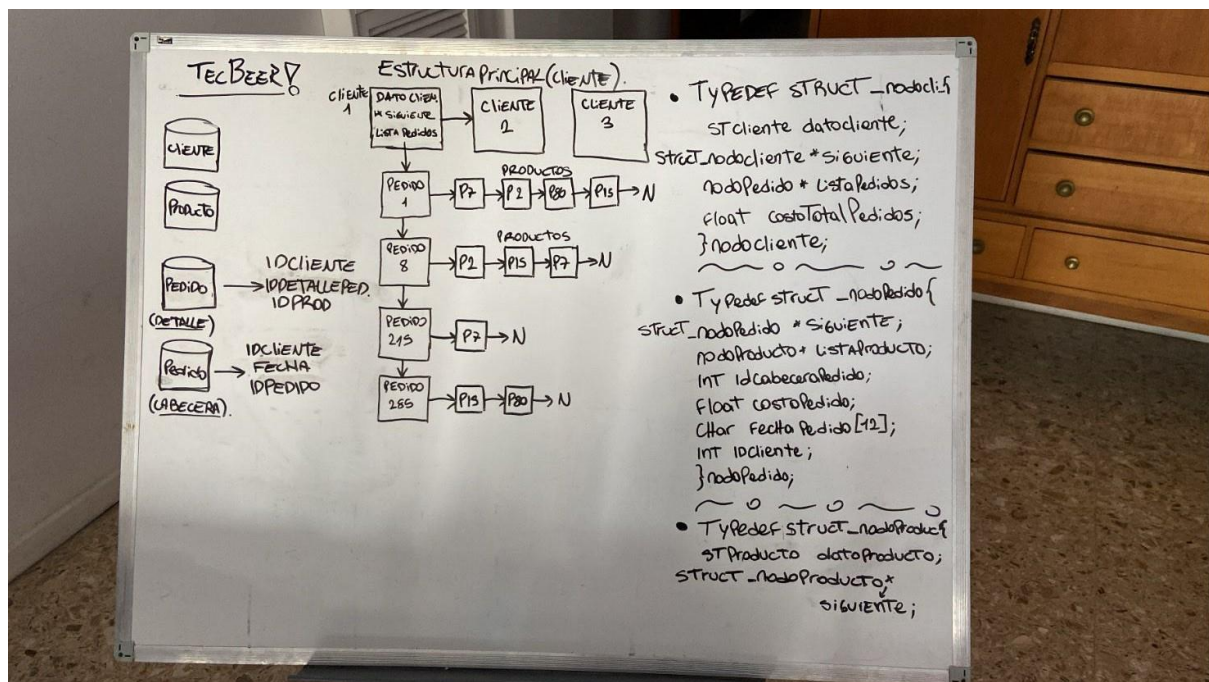 TECBEER!
CLIENTE
PRODUCTO
PEDIDO
(DETALLE)
IDCLIENTE
IDDETALLEPED.
IDPROD
Pedido
(CABECERA).
IDCLIENTE
FECHA
IDPEDIDO
ESTRUCTURA PRINCIPAL (CLIENTE).
CLIENTE
1
DATO CLIEN.
* SIGUIENTE
LISTA Pedidos
CLIENTE
2
CLIENTE
3
PEDIDO
1
PRODUCTOS
P7
P2
P80
P15
N
PEDIDO
8
PRODUCTOS
P2
P15
P7
N
PEDIDO
215
P7
N
PEDIDO
285
P15
P80
N
• TYPEDEF STRUCT _nodocli{
STcliente datocliente;
struct_nodocliente *siguiente;
nodoPedido * ListaPedidos;
float costoTotalPedidos;
}nodocliente;
• Typedef struct _nodoPedido{
struct_nodoPedido *siguiente;
nodoProducto* ListaProducto;
Int IdcabeceraPedido;
Float costoPedido;
CHar FecHa Pedido[12];
Int IDcliente;
}nodoPedido;
• Typedef struct_nodoProduct{
STProducto datoProducto;
STRUCT _nodoProducto*
siguiente;